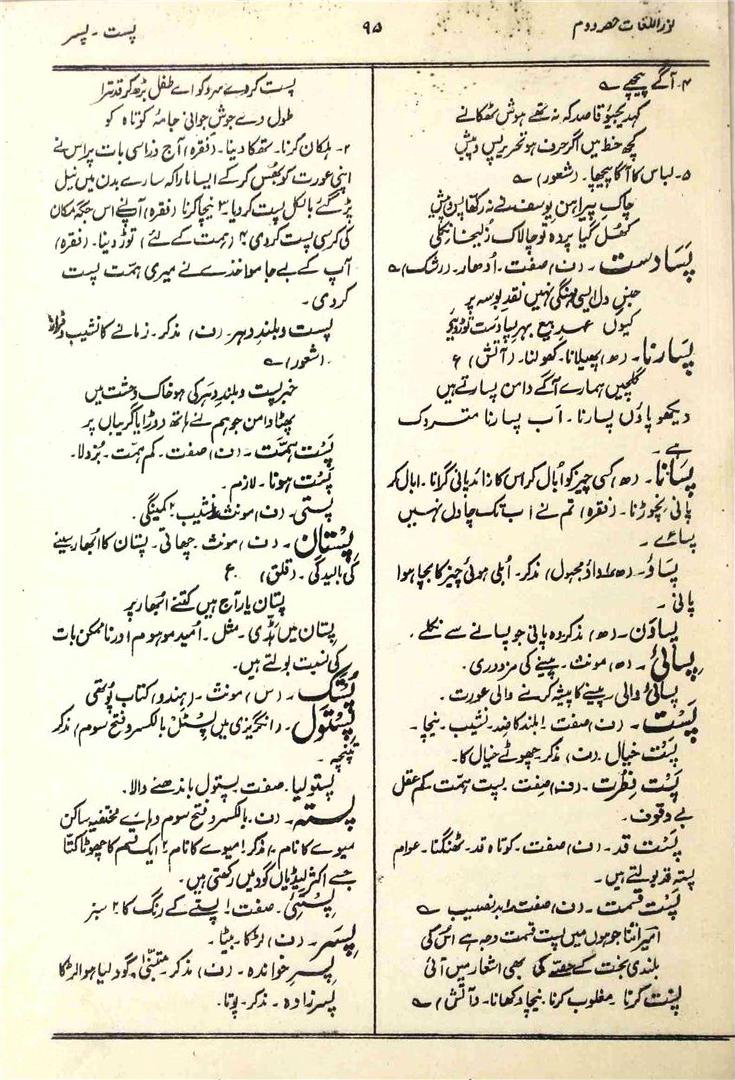 نور اللغات حصہ دوم
۹۵
پست - پسر
۴۔ آگے پیچھے ؎
کہدیجیو قاصد کہ نہ تھے ہوش ٹھکانے
کچھ خط میں اگر حرف ہو تحریر پس و پیش
۵۔ لباس کا آگا پیچھا۔ (شعور) ؎
چاک پیراہن یوسف نے نہ رکھا پس و پیش
کھل گیا پردہ تو چالاک زلیخا نکلی
پَسادست۔ (ف) صفت۔ اُدھار۔ (رشک) ؎
جنسِ دل ایسی مہنگی نہیں نقد بوسہ پر
کیوں عہدِ بیع بہرِ پسادست توڑیے
پَسارنا۔ (ھ) پھیلانا۔ کھولنا۔ (آتش) ؏
گلچیں ہمارے آگے دامن پسارتے ہیں
دیکھو پاؤں پسارنا۔ اَب پسارنا متروک
ہے۔
پَسانا۔ (ھ) کسی چیز کو اُبال کر اس کا زائد پانی گرانا۔ اُبال کر
پانی نچوڑنا۔ (فقرہ) تم نے اب تک چاول نہیں
پسائے۔
پَساؤ۔ (ھ) (واؤ مجہول) مذکر۔ اُبلی ہوئی چیز کا بچا ہوا
پانی۔
پساوَن۔ (ھ) مذکر وہ پانی جو پسانے سے نکلے۔
پِسائی۔ (ھ) مونث۔ پیسنے کی مزدوری۔
پسائی والی۔ پیسنے کا پیشہ کرنے والی عورت۔
پَست۔ (ف) صفت ۱ بلند کا ضد۔ نشیب۔ نیچا۔
پَست خیال۔ (ف) مذکر۔ چھوٹے خیال کا۔
پَست فِطرَت۔ (ف) صفت۔ پست ہمت۔ کم عقل
بے وقوف۔
پَست قد۔ (ف) صفت۔ کوتاہ قد۔ ٹھنگنا۔ عوام
پستہ قد بولتے ہیں۔
پَست قسمت۔ (ف) صفت۔ بدنصیب ؎
امیر اتنا جو ہوں میں پست قسمت وجہ ہے اس کی
بلندی بخت کے حصے کی بھی اشعار میں آئی
پَست کرنا۔ مغلوب کرنا۔ نیچا دکھانا۔ (آتش) ؎
پست کر دے سرو کو اے طفل بڑھ کر قد ترا
طول دے جوشِ جوانی جامۂ کوتاہ کو
۲۔ ہلکان کرنا۔ تھکا دینا۔ (فقرہ) آج ذرا سی بات پر اس نے
اپنی عورت کو بھس کر کے ایسا مارا کہ سارے بدن میں نیل
پڑ گئے بالکل پست کر دیا۔ ۳ نیچا کرنا (فقرہ) آپنے اس جگہ مکان
کی کرسی پست کر دی۔ ۴ (ہمت کے لئے) توڑ دینا۔ (فقرہ)
آپ کے بے جا مواخذے نے میری ہمت پست
کر دی۔
پست و بلندِ دہر۔ (ف) مذکر۔ زمانے کا نشیب و فراز
(شعور) ؎
خبر پست و بلندِ دہر کی ہو خاک وحشت میں
پھٹا دامن جو ہم نے ہاتھ دوڑایا گریباں پر
پَست ہمّت۔ (ف) صفت۔ کم ہمت۔ بُزدلا۔
پَست ہونا۔ لازم۔
پستی۔ (ف) مونث ۱ نشیب ۲ کمینگی۔
پِستان۔ (ف) مونث۔ چھاتی۔ پستان کا اُبھار سینے
کی بالیدگی۔ (قلق) ؏
پستانِ یار آج ہیں کتنے اُبھار پر
پِستان میں ہڈّی۔ مثل۔ اُمید موہوم اور ناممکن بات
کی نسبت بولتے ہیں۔
پُستک۔ (س) مونث۔ (ہندو) کتاب پوتھی
پِستول۔ (انگریزی میں پِسٹَل بالکسر و فتح سوم) مذکر
طپنچہ۔
پستولیا۔ صفت پستول باندھنے والا۔
پِستہ۔ (ف۔ بالکسر و فتح سوم و ہائے مختفیہ ساکن
میوے کا نام) مذکر ۱ میوے کا نام ۲ ایک قسم کا چھوٹا کتا
جسے اکثر لیڈیاں گود میں رکھتی ہیں۔
پِستئی۔ صفت ۱ پستے کے رنگ کا ۲ سبز
پِسَر۔ (ف) لڑکا۔ بیٹا۔
پسرِ خواندہ۔ (ف) مذکر۔ متبنّیٰ۔ گود لیا ہوا لڑکا
پسر زادہ۔ مذکر۔ پوتا۔